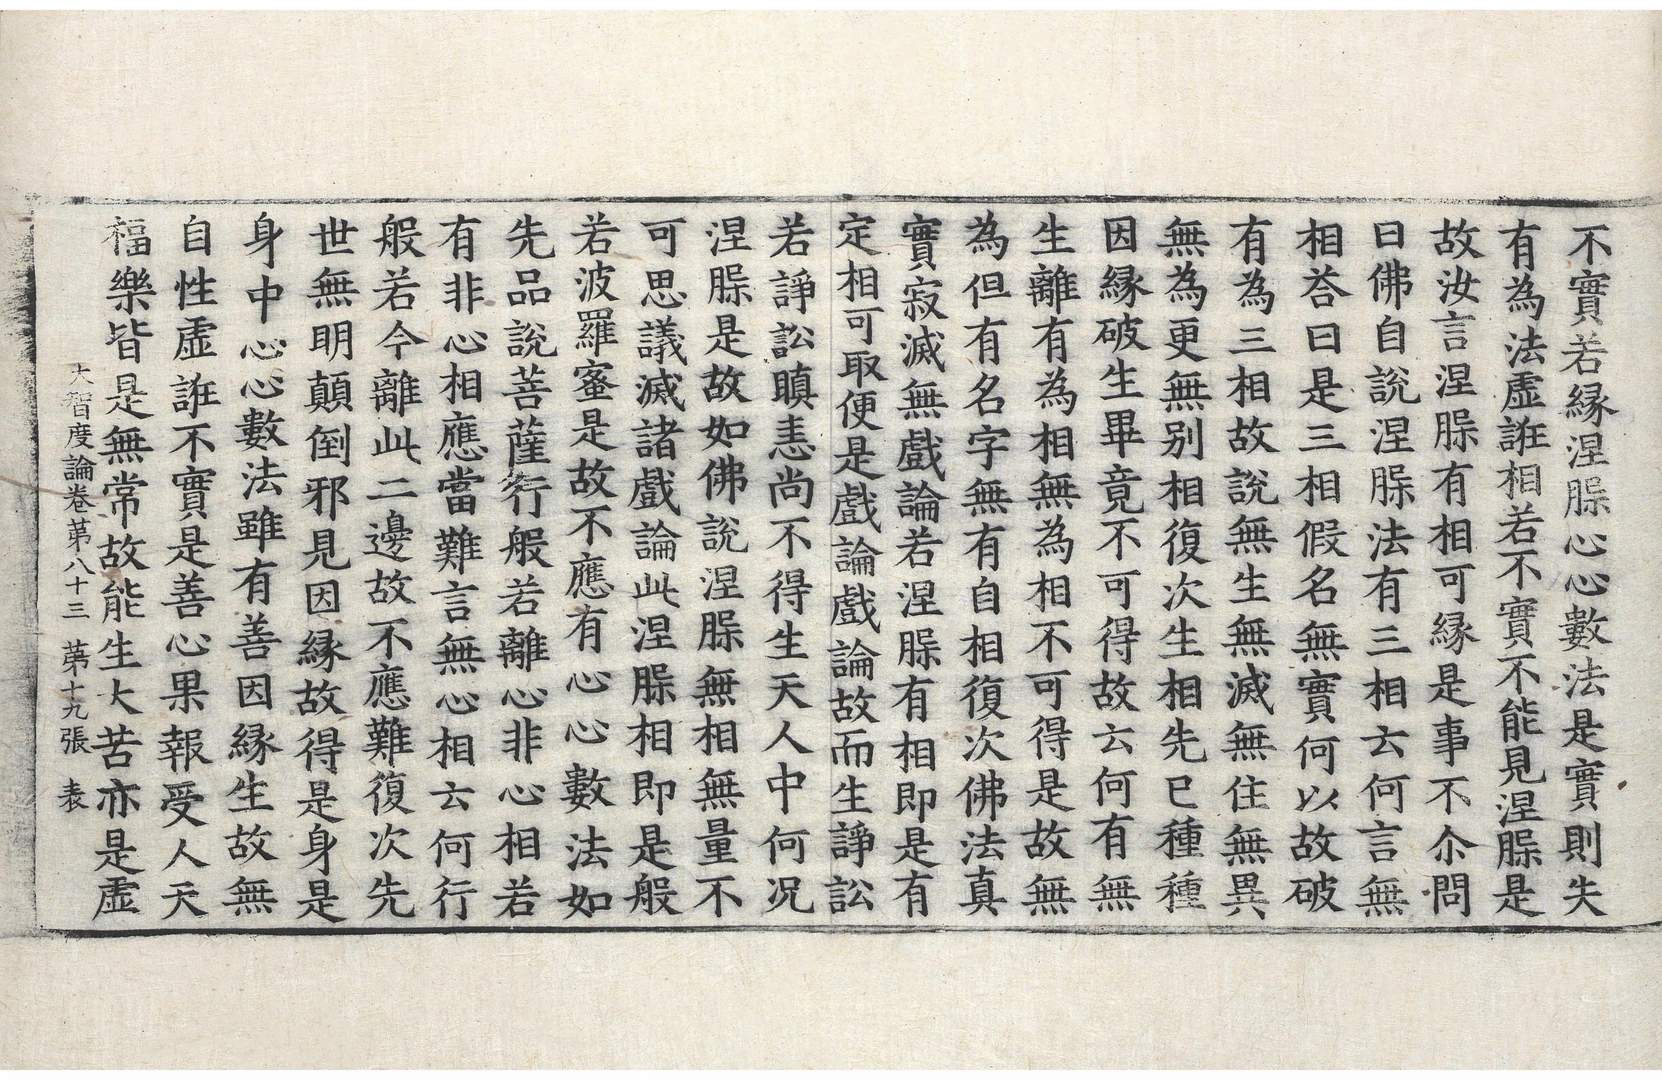 不實若緣涅槃心心數法是實則失
有為法虛誑相若不實不能見涅槃是
故汝言涅槃有相可緣是事不尒問
曰佛自說涅槃法有三相云何言無
相荅曰是三相假名無實何以故破
有為三相故說無生無滅無住無異
無為更無別相復次生相先已種種
因緣破生畢竟不可得故云何有無
生離有為相無為相不可得是故無
為但有名字無有自相復次佛法真
實寂滅無戲論若涅槃有相即是有
定相可取便是戲論戲論故而生諍訟
若諍訟瞋恚尚不得生天人中何況
涅槃是故如佛說涅槃無相無量不
可思議滅諸戲論此涅槃相即是般
若波羅蜜是故不應有心心數法如
先品說菩薩行般若離心非心相若
有非心相應當難言無心相云何行
般若今離此二邊故不應難復次先
世無明顛倒邪見因緣故得是身是
身中心心數法雖有善因緣生故無
自性虛誑不實是善心果報受人天
福樂皆是無常故能生大苦亦是虛
大智度論卷第八十三 第十九張 表